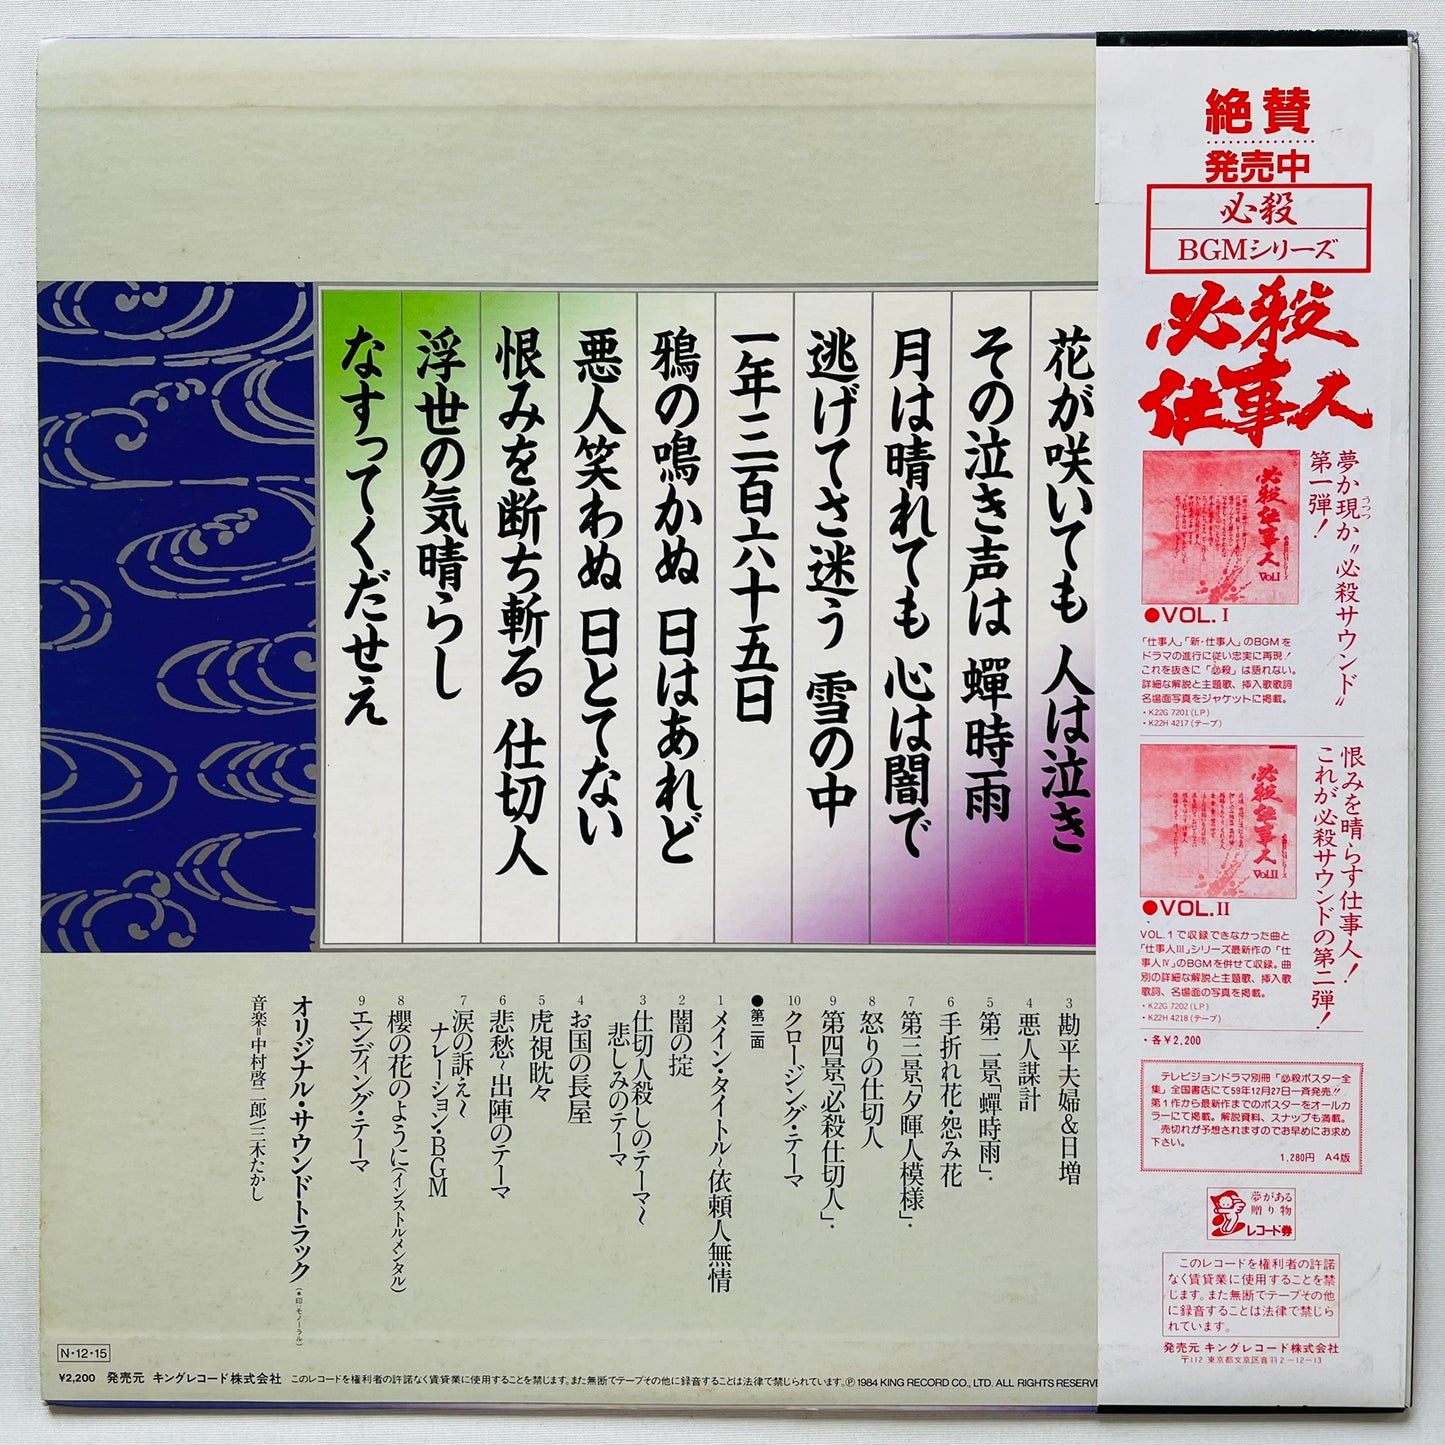 絶賛
発売中
必殺
BGMシリーズ
必殺
仕事人
夢か現か〝必殺サウンド〟
うつつ
第一弾!
必殺仕事人
Vol.I
●VOL. I
「仕事人」「新・仕事人」のBGMを
ドラマの進行に従い忠実に再現!
これを抜きに「必殺」は語れない。
詳細な解説と主題歌、挿入歌歌詞
名場面写真をジャケットに掲載。
・K22G 7201(LP)
・K22H 4217(テープ)
恨みを晴らす仕事人!
これが必殺サウンドの第二弾!
必殺仕事人
Vol.II
●VOL. II
VOL.1で収録できなかった曲と
「仕事人III」シリーズ最新作の「仕
事人IV」のBGMを併せて収録。曲
別の詳細な解説と主題歌、挿入歌
歌詞、名場面の写真を掲載。
・K22G 7202(LP)
・K22H 4218(テープ)
・各¥2,200
テレビジョンドラマ別冊「必殺ポスター全
集」全国書店にて59年12月27日一斉発売!!
第1作から最新作までのポスターをオールカ
ラーにて掲載。解説資料、スナップも満載。
売切れが予想されますのでお早めにお求め
下さい。
1,280円 A4版
夢がある
贈り物
レコード券
このレコードを権利者の許諾
なく賃貸業に使用することを禁
じます。また無断でテープその他
に録音することは法律で禁じら
れています。
発売元 キングレコード株式会社
〒112 東京都文京区音羽2-12-13
花が咲いても 人は泣き
その泣き声は 蟬時雨
月は晴れても 心は闇で
逃げてさ迷う 雪の中
一年三百六十五日
鴉の鳴かぬ 日はあれど
悪人笑わぬ 日とてない
恨みを断ち斬る 仕切人
浮世の気晴らし
なすってくだせえ
3 勘平夫婦&日増
4 悪人謀計
5 第二景「蟬時雨」・
6 手折れ花・怨み花
7 第三景「夕暉人模様」・
8 怒りの仕切人
9 第四景「必殺仕切人」・
10 クロージング・テーマ
●第二面
1 メイン・タイトル〜依頼人無情
2 闇の掟
3 仕切人殺しのテーマ〜
悲しみのテーマ
4 お国の長屋
5 虎視眈々
6 悲愁〜出陣のテーマ
7 涙の訴え〜
ナレーション・BGM
8 櫻の花のように(インストルメンタル)
9 エンディング・テーマ
オリジナル・サウンドトラック(*印・モノーラル)
音楽=中村啓二郎/三木たかし
N・12・15
¥2,200 発売元 キングレコード株式会社 このレコードを権利者の許諾なく賃貸業に使用することを禁じます。また無断でテープその他に録音することは法律で禁じられています。Ⓟ1984 KING RECORD CO., LTD. ALL RIGHTS RESERVE